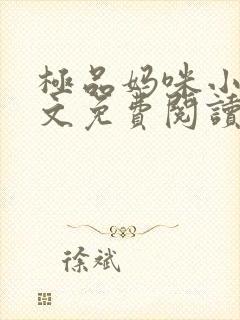 極品妈咪小
文免費閱讀
徐斌